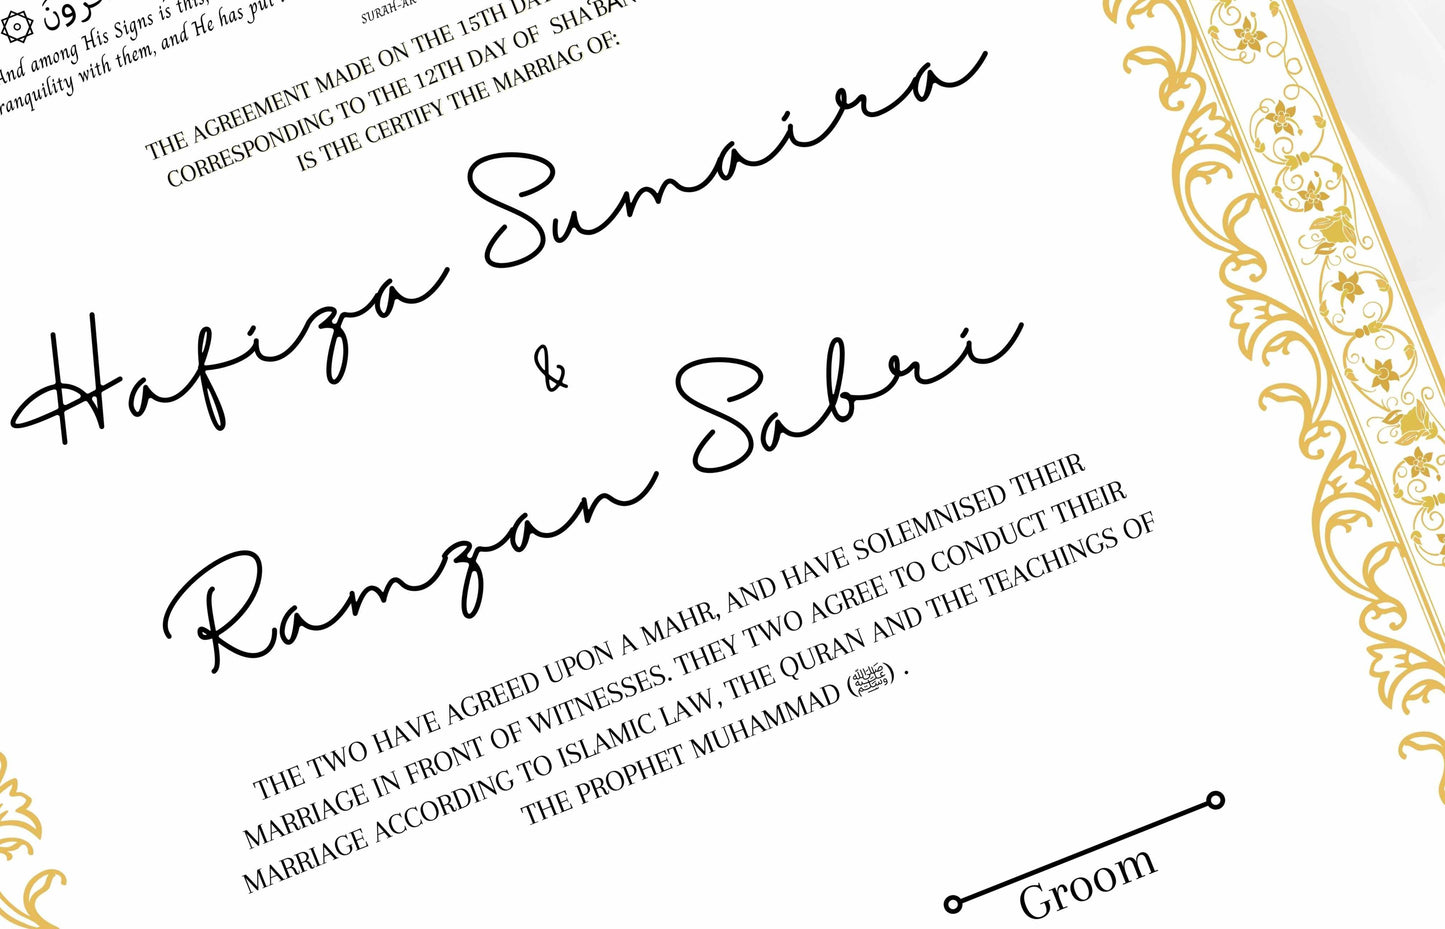 رُونَ
And among His Signs is this,
tranquility with them, and He has put
SURAH-AR
THE AGREEMENT MADE ON THE 15TH DAY
CORRESPONDING TO THE 12TH DAY OF SHA'BAN
IS THE CERTIFY THE MARRIAG OF:
Hafiza Sumaira
&
Ramzan Sabri
THE TWO HAVE AGREED UPON A MAHR, AND HAVE SOLEMNISED THEIR
MARRIAGE IN FRONT OF WITNESSES. THEY TWO AGREE TO CONDUCT THEIR
MARRIAGE ACCORDING TO ISLAMIC LAW, THE QURAN AND THE TEACHINGS OF
THE PROPHET MUHAMMAD (ﷺ) .
Groom